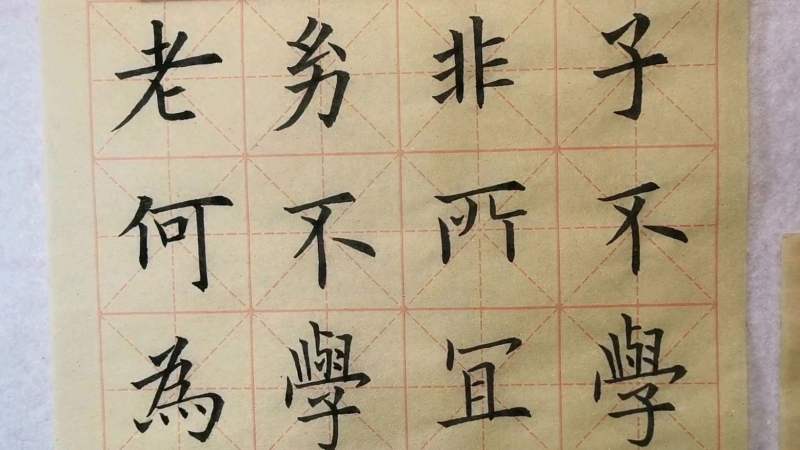 子不學
非所宜
㓜不學
老何為